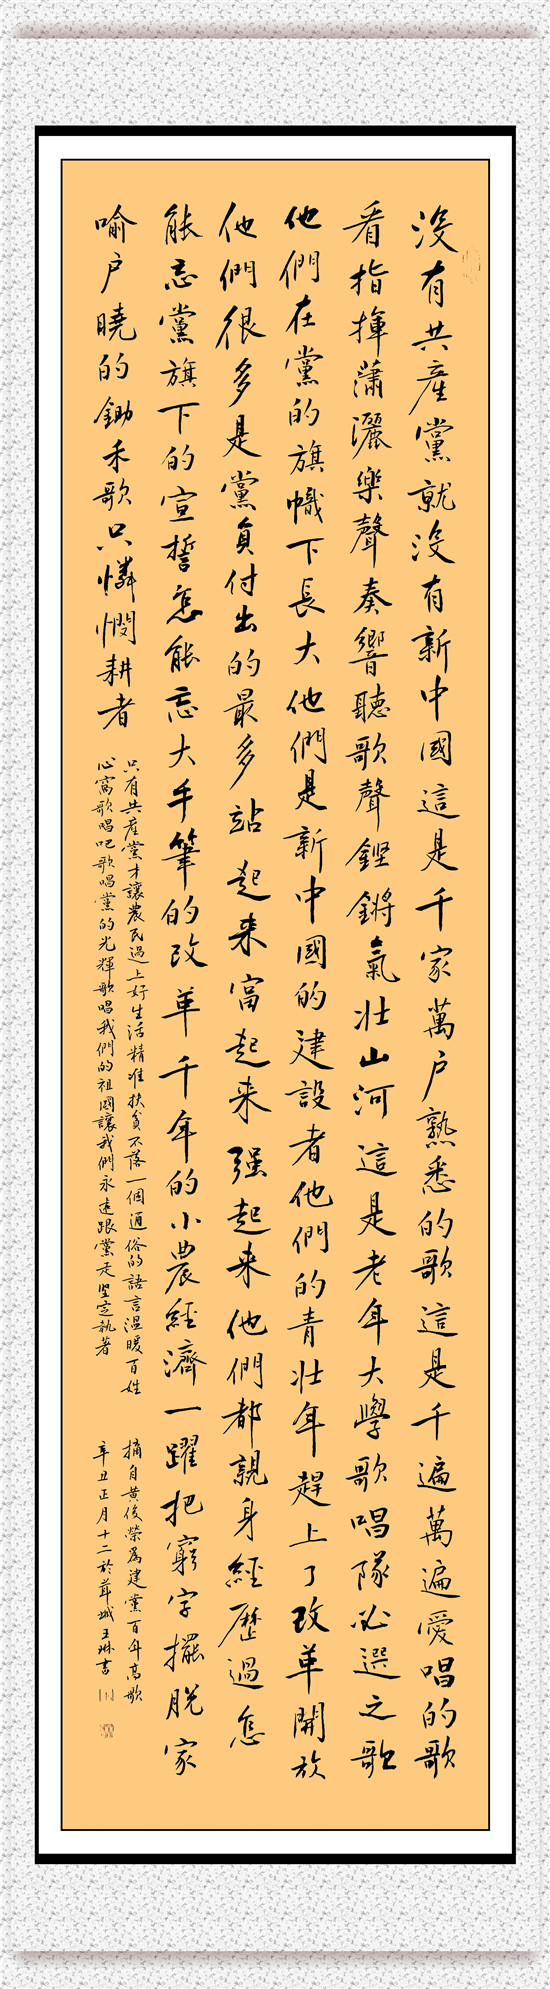 沒有共產黨就沒有新中國這是千家萬户熟悉的歌這是千遍萬遍愛唱的歌
看指揮蕭灑樂聲奏響聽歌聲鏗鏘氣壯山河這是老年大學歌唱隊必選之歌
他們在黨的旗幟下長大他們是新中國的建設者他們的青壯年趕上了改革開放
他們很多是黨員付出的最多站起来富起来强起来他們都親身經歷過怎
能忘黨旗下的宣誓怎能忘大手筆的改革千年的小農經濟一躍把窮字擺脱家
喻户曉的鋤禾歌只憐憫耕者
只有共產黨才讓農民過上好生活精准扶貧不落一個通俗的語言温暖百姓
心窩歌唱吧歌唱黨的光輝歌唱我們的祖國讓我們永遠跟黨走堅定執著
摘自黄俊榮爲建黨百年高歌
辛丑正月十二於茸城王琳書